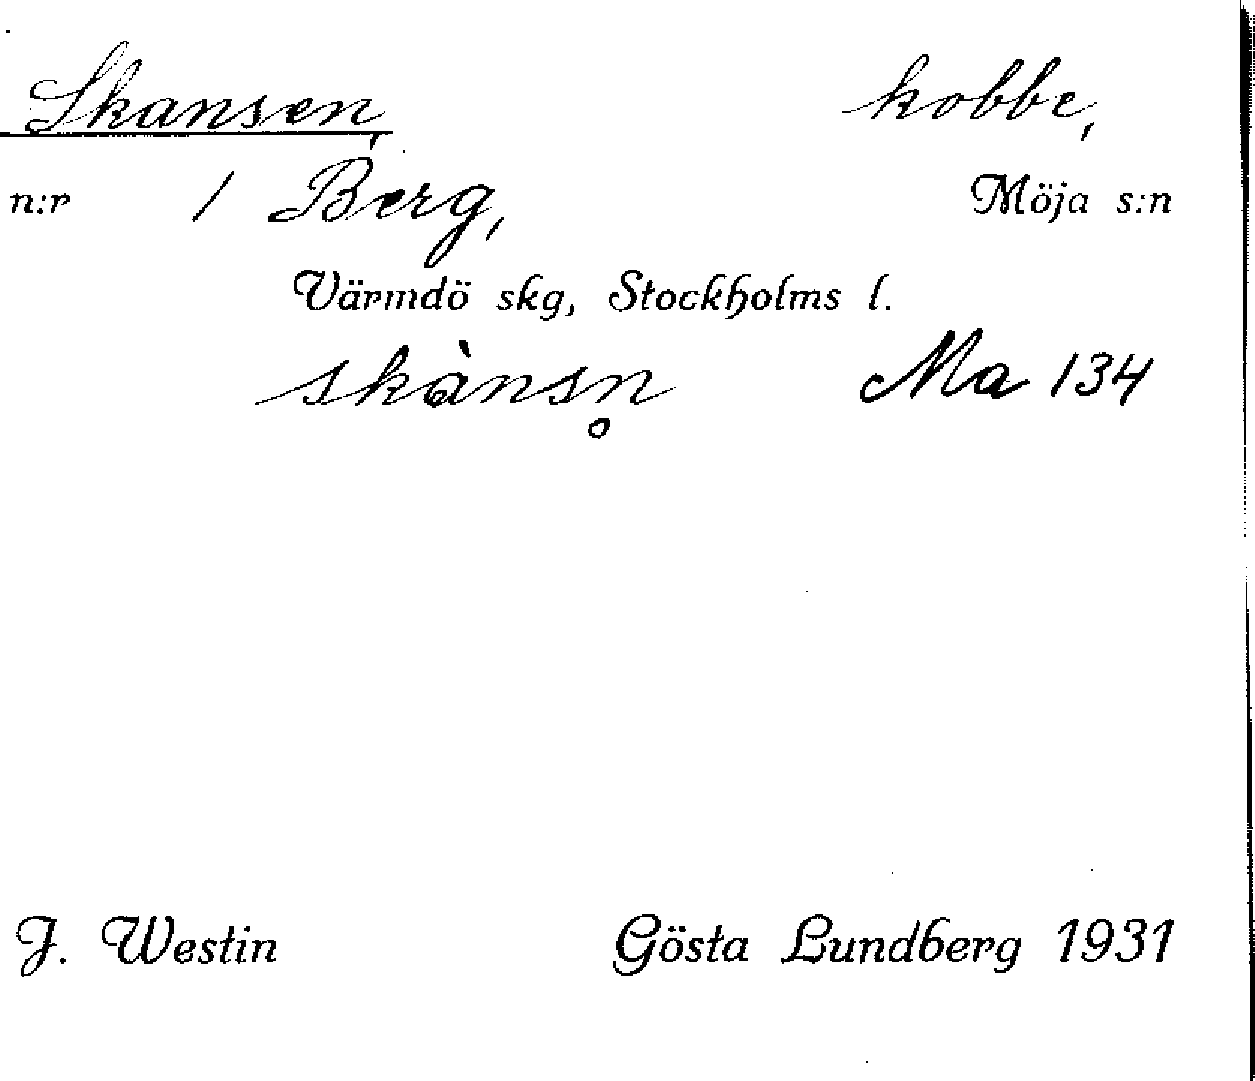 Skansen, kobbe,
n:r 1 Berg, Möja s:n
Värmdö skg, Stockholms l.
skànsn̥ Ma 134
J. Westin Gösta Lundberg 1931